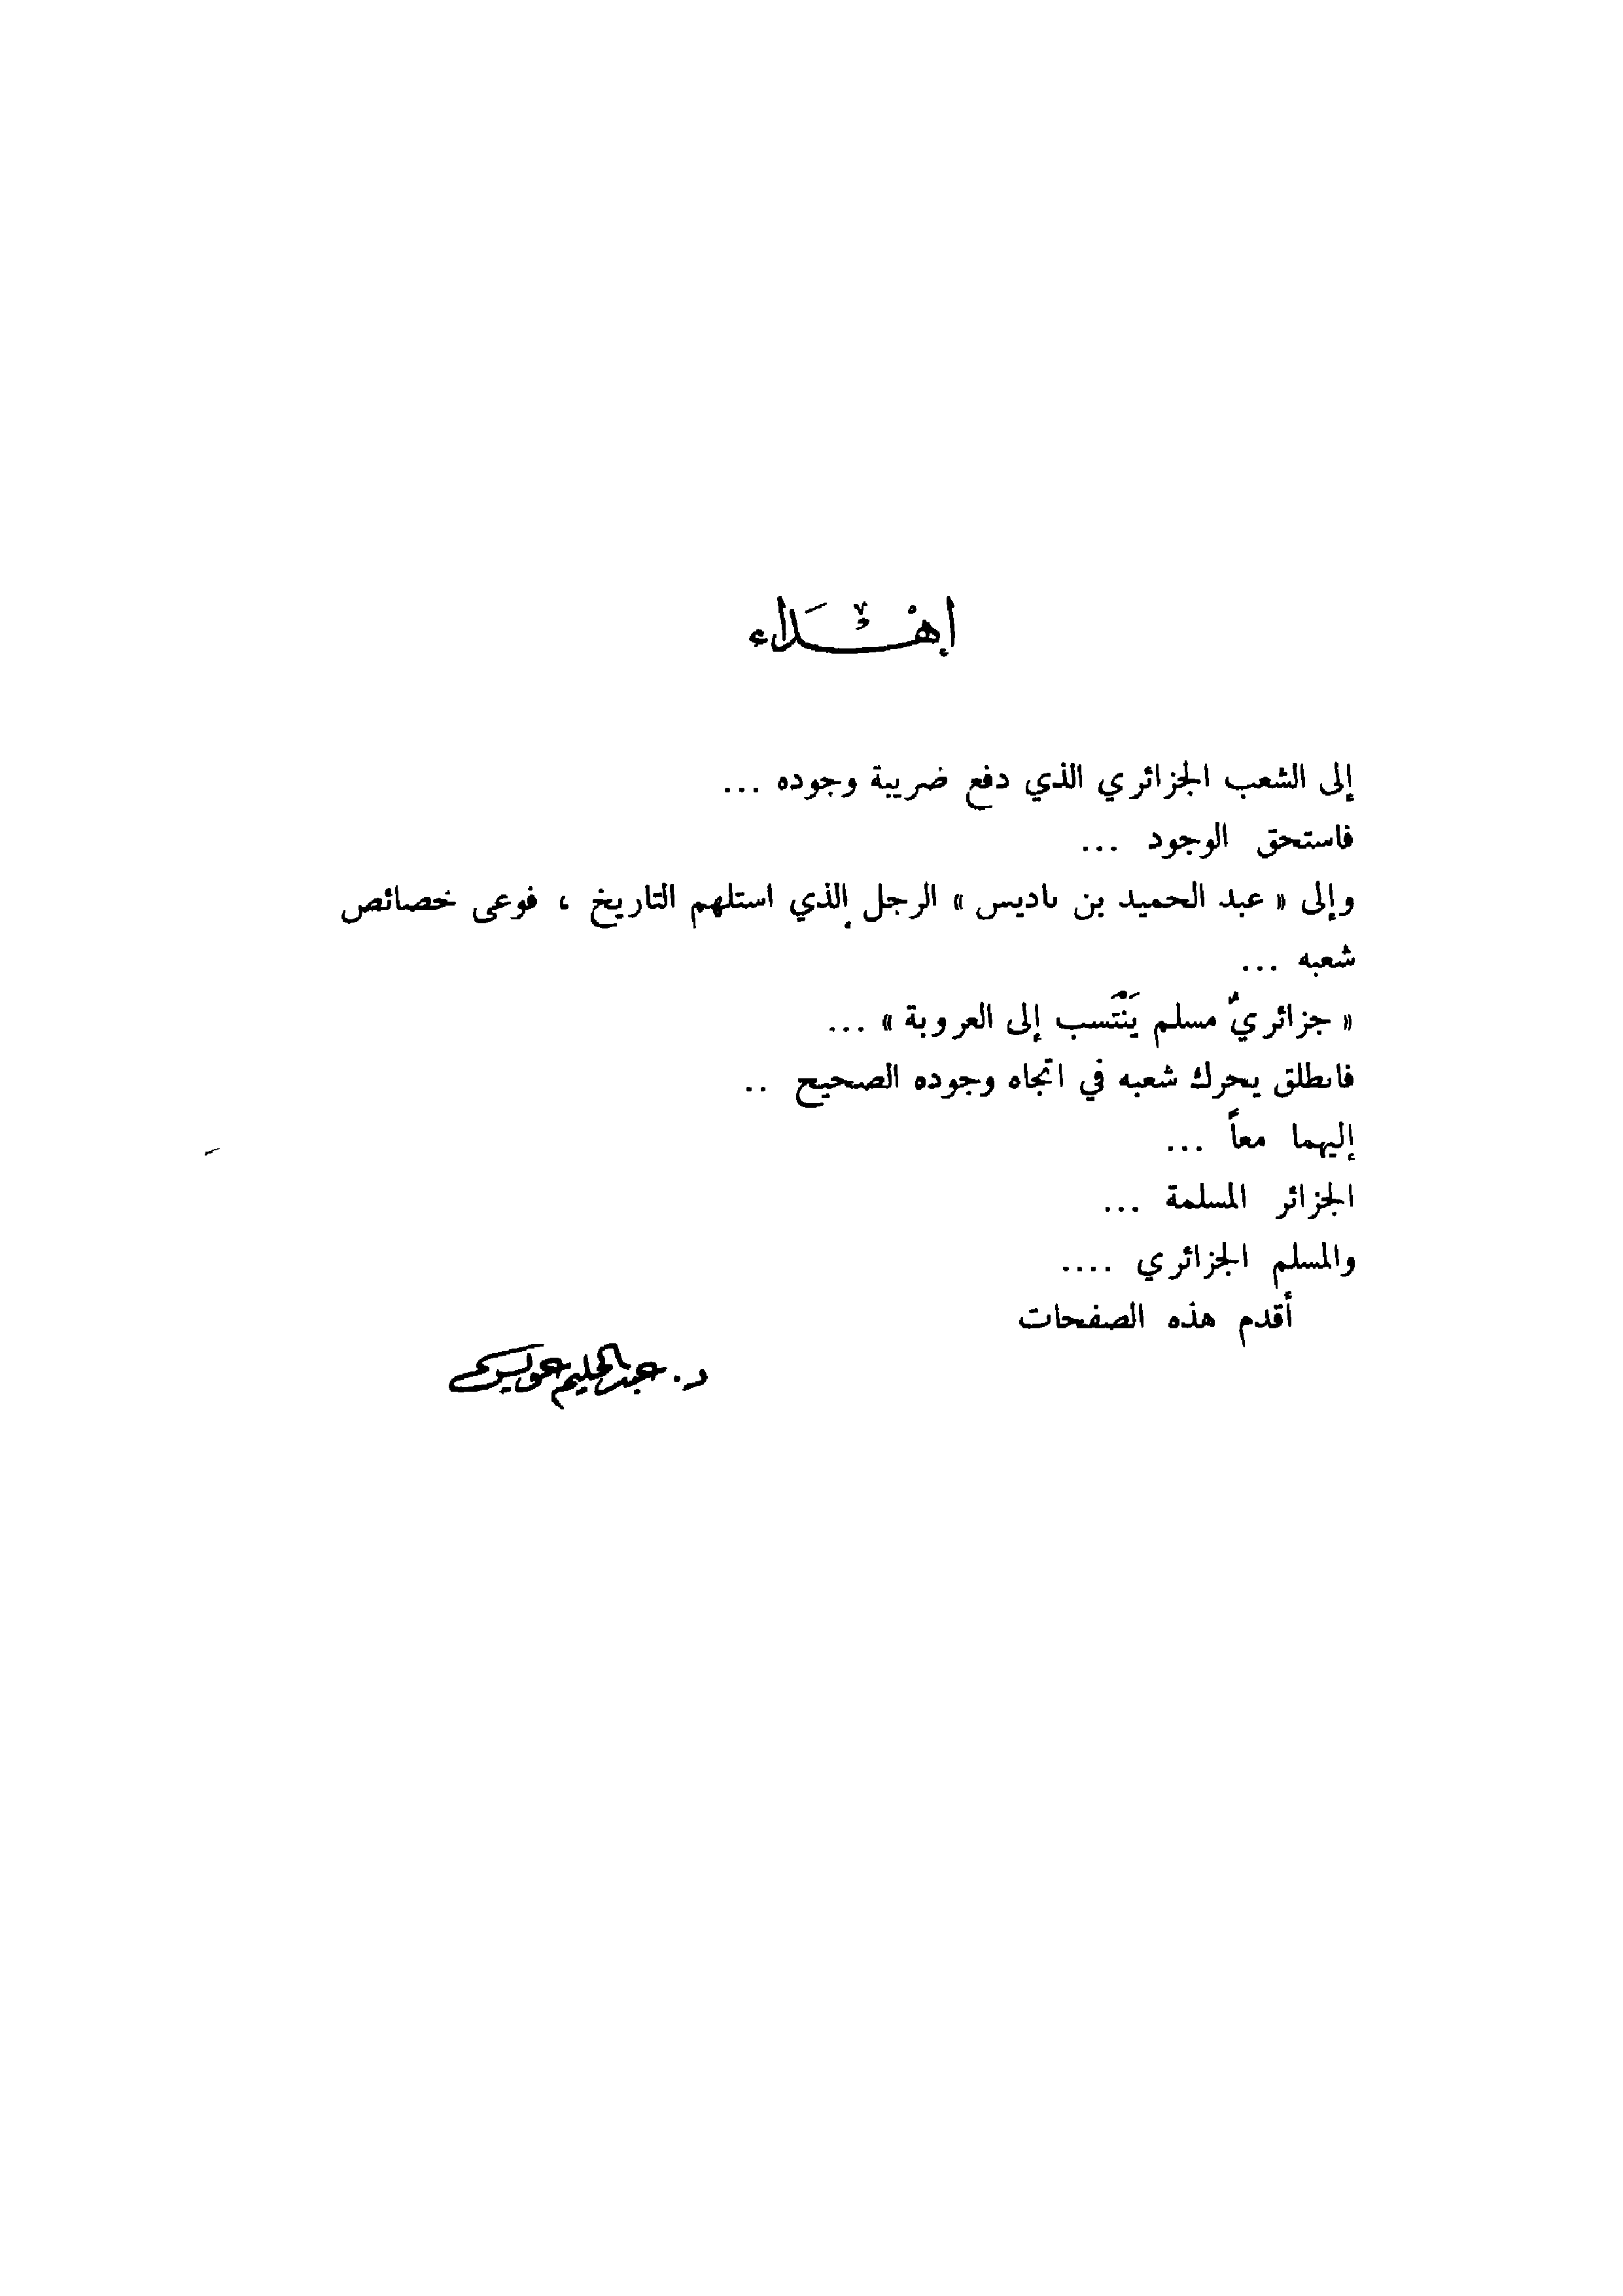 إهْدَاء
إلى الشعب الجزائري الذي دفع ضريبة وجوده ...
فاستحق الوجود ...
وإلى « عبد الحميد بن باديس » الرجل الذي استلهم التاريخ ، فوعى خصائص
شعبه ...
« جزائريٌ مسلم يَنْتَسب إلى العروبة » ...
فانطلق يحرك شعبه في اتجاه وجوده الصحيح ..
إليهما معاً ...
الجزائر المسلمة ...
والمسلم الجزائري ....
أقدم هذه الصفحات
د. عبد الحليم عويس